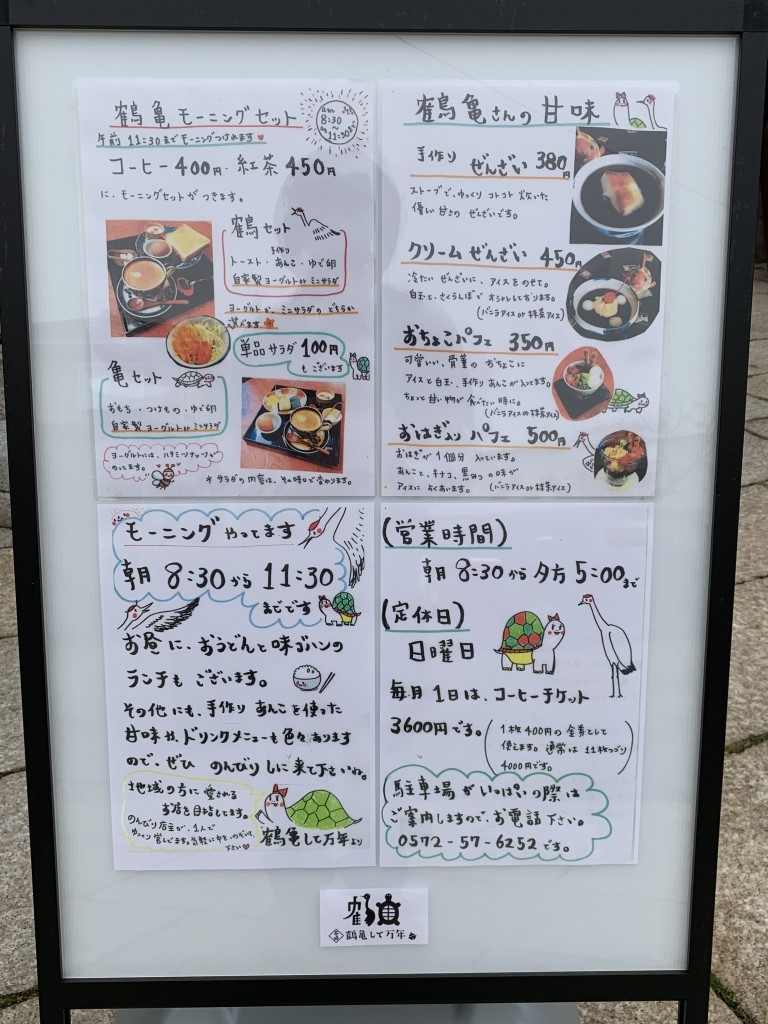 鶴亀モーニングセット
am 8:30 から 11:30
午前 11:30までモーニングつけれます♥
コーヒー 400円・紅茶 450円
に、モーニングセットがつきます。
鶴セット
手作り
トースト・あんこ・ゆで卵
自家製ヨーグルトorミニサラダ
ヨーグルトか、ミニサラダの どちらか
選べます
単品サラダ 100円
もございます
亀セット
おもち・つけもの・ゆで卵
自家製ヨーグルトorミニサラダ
ヨーグルトには、ハチミツナッツが
のってます。
*サラダの内容は、その時々で変わります。
鶴亀さんの甘味
手作り ぜんざい 380円
ストーブで、ゆっくり コトコト 炊いた
優しい甘さの ぜんざいです。
クリームぜんざい 450円
冷たい ぜんざいに、アイスをのせて。
白玉と、さくらんぼで オシャレしております。
(バニラアイスor抹茶アイス)
おちょこパフェ 350円
可愛いい、骨董の おちょこに
アイスと白玉、手作りあんこが入ってます。
ちょっと甘い物が食べたい時に。
(バニラアイスor抹茶アイス)
おはぎ入り パフェ 500円
おはぎが1個分 入っています。
あんこと、キナコ、黒みつの味が
アイスに よくあいます。 (バニラアイスor抹茶アイス)
モーニングやってます
朝 8:30から 11:30
までです
お昼に、おうどんと味ゴハンの
ランチも ございます。
その他にも、手作り あんこを使った
甘味や、ドリンクメニューも色々あります
ので、ぜひ のんびりしに来て下さいね。
地域の方に愛される
お店を目指してます。
のんびり店主が、1人で
ゆっくり営んでます。気軽に中を、のぞいて
下さい♥
鶴亀して万年より
(営業時間)
朝 8:30から夕方 5:00まで
(定休日)
日曜日
毎月1日は、コーヒーチケット
3600円です。
(1枚400円の金券として
使えます。通常は 11枚つづり
4000円です。)
駐車場がいっぱいの際は
ご案内しますので、お電話下さい。
0572-57-6252です。
鶴
鶴亀して万年